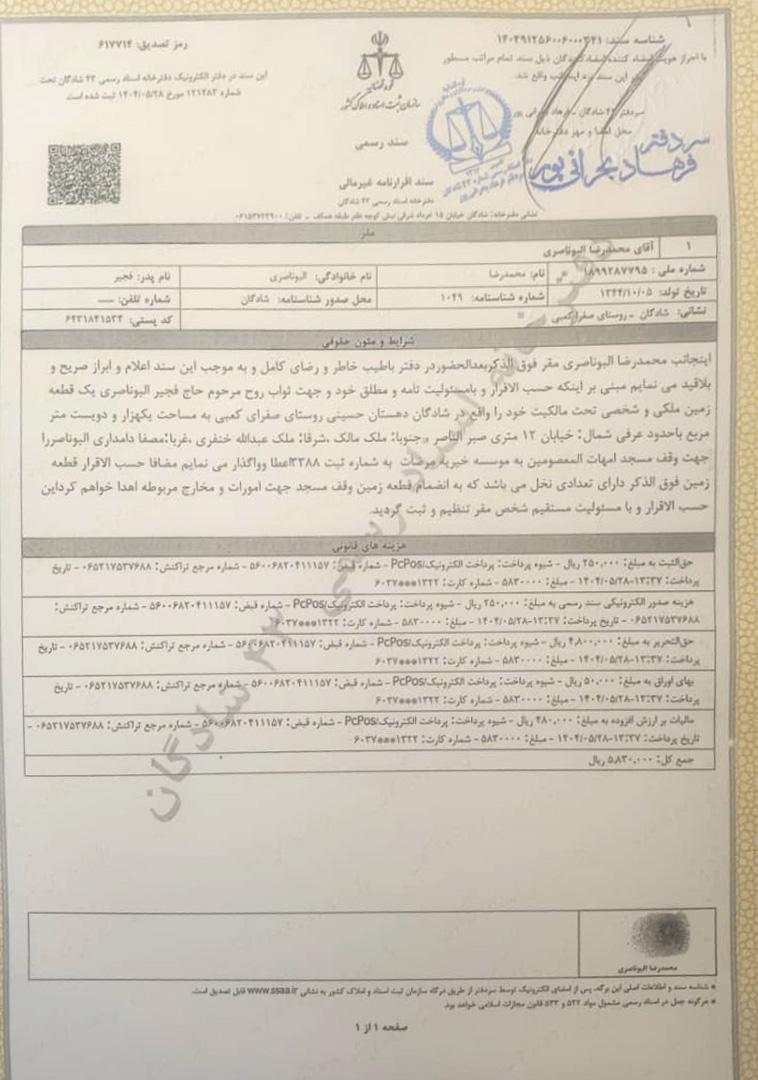 شناسه سند: ۱۴۰۴۹۱۲۵۶۰۰۶۰۰۰۳۴۱
با احراز هویت امضاء کننده/امضاءکنندگان ذیل سند تمام مراتب مسطور
در این سند نزد اینجانب واقع شد.
سردفتر ۴۳ شادگان - فرهاد بحرانی پور
محل امضا و مهر دفترخانه
سردفتر
فرهاد بحرانی پور
قوه قضائیه
سازمان ثبت اسناد و املاک کشور
سند رسمی
سند اقرارنامه غیرمالی
دفترخانه اسناد رسمی ۴۳ شادگان
رمز تصدیق: ۶۱۷۷۱۴
این سند در دفتر الکترونیک دفترخانه اسناد رسمی ۴۳ شادگان تحت
شماره ۱۲۱۴۸۳ مورخ ۱۴۰۴/۰۵/۲۸ ثبت شده است.
نشانی دفترخانه: شادگان خیابان ۱۵ خرداد شرقی نبش کوچه ظفر طبقه همکف - تلفن: ۰۶۱۵۳۷۲۲۹۰۰
مقر
۱ آقای محمدرضا البوناصری
شماره ملی: ۱۸۹۹۲۸۷۷۹۵ نام: محمدرضا نام خانوادگی: البوناصری نام پدر: فجیر
تاریخ تولد: ۱۳۴۴/۱۰/۰۵ شماره شناسنامه: ۱۰۴۹ محل صدور شناسنامه: شادگان شماره تلفن: ----
نشانی: شادگان - روستای صفرا کعبی کد پستی: ۶۴۳۱۸۴۱۵۳۴
شرایط و متون حقوقی
اینجانب محمدرضا البوناصری مقر فوق الذکربعدالحضوردر دفتر باطیب خاطر و رضای کامل و به موجب این سند اعلام و ابراز صریح و
بلاقید می نمایم مبنی بر اینکه حسب الاقرار و بامسئولیت تامه و مطلق خود و جهت ثواب روح مرحوم حاج فجیر البوناصری یک قطعه
زمین ملکی و شخصی تحت مالکیت خود را واقع در شادگان دهستان حسینی روستای صفرای کعبی به مساحت یکهزار و دویست متر
مربع باحدود عرفی شمال: خیابان ۱۲ متری صبر الناصر و جنوبا: ملک مالک ،شرقا: ملک عبدالله خنفری ،غربا:مصفا دامداری البوناصررا
جهت وقف مسجد امهات المعصومین به موسسه خیریه مرضات به شماره ثبت ۳۳۸۸اعطا وواگذار می نمایم مضافا حسب الاقرار قطعه
زمین فوق الذکر دارای تعدادی نخل می باشد که به انضمام قطعه زمین وقف مسجد جهت امورات و مخارج مربوطه اهدا خواهم کرداین
حسب الاقرار و با مسئولیت مستقیم شخص مقر تنظیم و ثبت گردید.
هزینه های قانونی
حق‌الثبت به مبلغ: ۲۵۰,۰۰۰ ریال - شیوه پرداخت: پرداخت الکترونیک/PcPos - شماره قبض: ۵۶۰۰۶۸۲۰۴۱۱۱۵۷ - شماره مرجع تراکنش: ۰۶۵۲۱۷۵۳۷۶۸۸ - تاریخ
پرداخت: ۱۳:۳۷-۱۴۰۴/۰۵/۲۸ - مبلغ: ۵۸۳۰۰۰۰ - شماره کارت: ۶۰۳۷***۱۳۲۲
هزینه صدور الکترونیکی سند رسمی به مبلغ: ۲۵۰,۰۰۰ ریال - شیوه پرداخت: پرداخت الکترونیک/PcPos - شماره قبض: ۵۶۰۰۶۸۲۰۴۱۱۱۵۷ - شماره مرجع تراکنش:
۰۶۵۲۱۷۵۳۷۶۸۸ - تاریخ پرداخت: ۱۳:۳۷-۱۴۰۴/۰۵/۲۸ - مبلغ: ۵۸۳۰۰۰۰ - شماره کارت: ۶۰۳۷***۱۳۲۲
حق‌التحریر به مبلغ: ۴,۸۰۰,۰۰۰ ریال - شیوه پرداخت: پرداخت الکترونیک/PcPos - شماره قبض: ۵۶۰۰۶۸۲۰۴۱۱۱۵۷ - شماره مرجع تراکنش: ۰۶۵۲۱۷۵۳۷۶۸۸ - تاریخ
پرداخت: ۱۳:۳۷-۱۴۰۴/۰۵/۲۸ - مبلغ: ۵۸۳۰۰۰۰ - شماره کارت: ۶۰۳۷***۱۳۲۲
بهای اوراق به مبلغ: ۵۰,۰۰۰ ریال - شیوه پرداخت: پرداخت الکترونیک/PcPos - شماره قبض: ۵۶۰۰۶۸۲۰۴۱۱۱۵۷ - شماره مرجع تراکنش: ۰۶۵۲۱۷۵۳۷۶۸۸ - تاریخ
پرداخت: ۱۳:۳۷-۱۴۰۴/۰۵/۲۸ - مبلغ: ۵۸۳۰۰۰۰ - شماره کارت: ۶۰۳۷***۱۳۲۲
مالیات بر ارزش افزوده به مبلغ: ۴۸۰,۰۰۰ ریال - شیوه پرداخت: پرداخت الکترونیک/PcPos - شماره قبض: ۵۶۰۰۶۸۲۰۴۱۱۱۵۷ - شماره مرجع تراکنش: ۰۶۵۲۱۷۵۳۷۶۸۸ -
تاریخ پرداخت: ۱۳:۳۷-۱۴۰۴/۰۵/۲۸ - مبلغ: ۵۸۳۰۰۰۰ - شماره کارت: ۶۰۳۷***۱۳۲۲
جمع کل: ۵,۸۳۰,۰۰۰ ریال
محمدرضا البوناصری
* شناسه سند و اطلاعات اصلی این برگه، پس از امضای الکترونیک توسط سردفتر از طریق درگاه سازمان ثبت اسناد و املاک کشور به نشانی www.ssaa.ir قابل تصدیق است.
* هرگونه جعل در اسناد رسمی مشمول مواد ۵۳۲ و ۵۳۳ قانون مجازات اسلامی خواهد بود.
صفحه ۱ از ۱